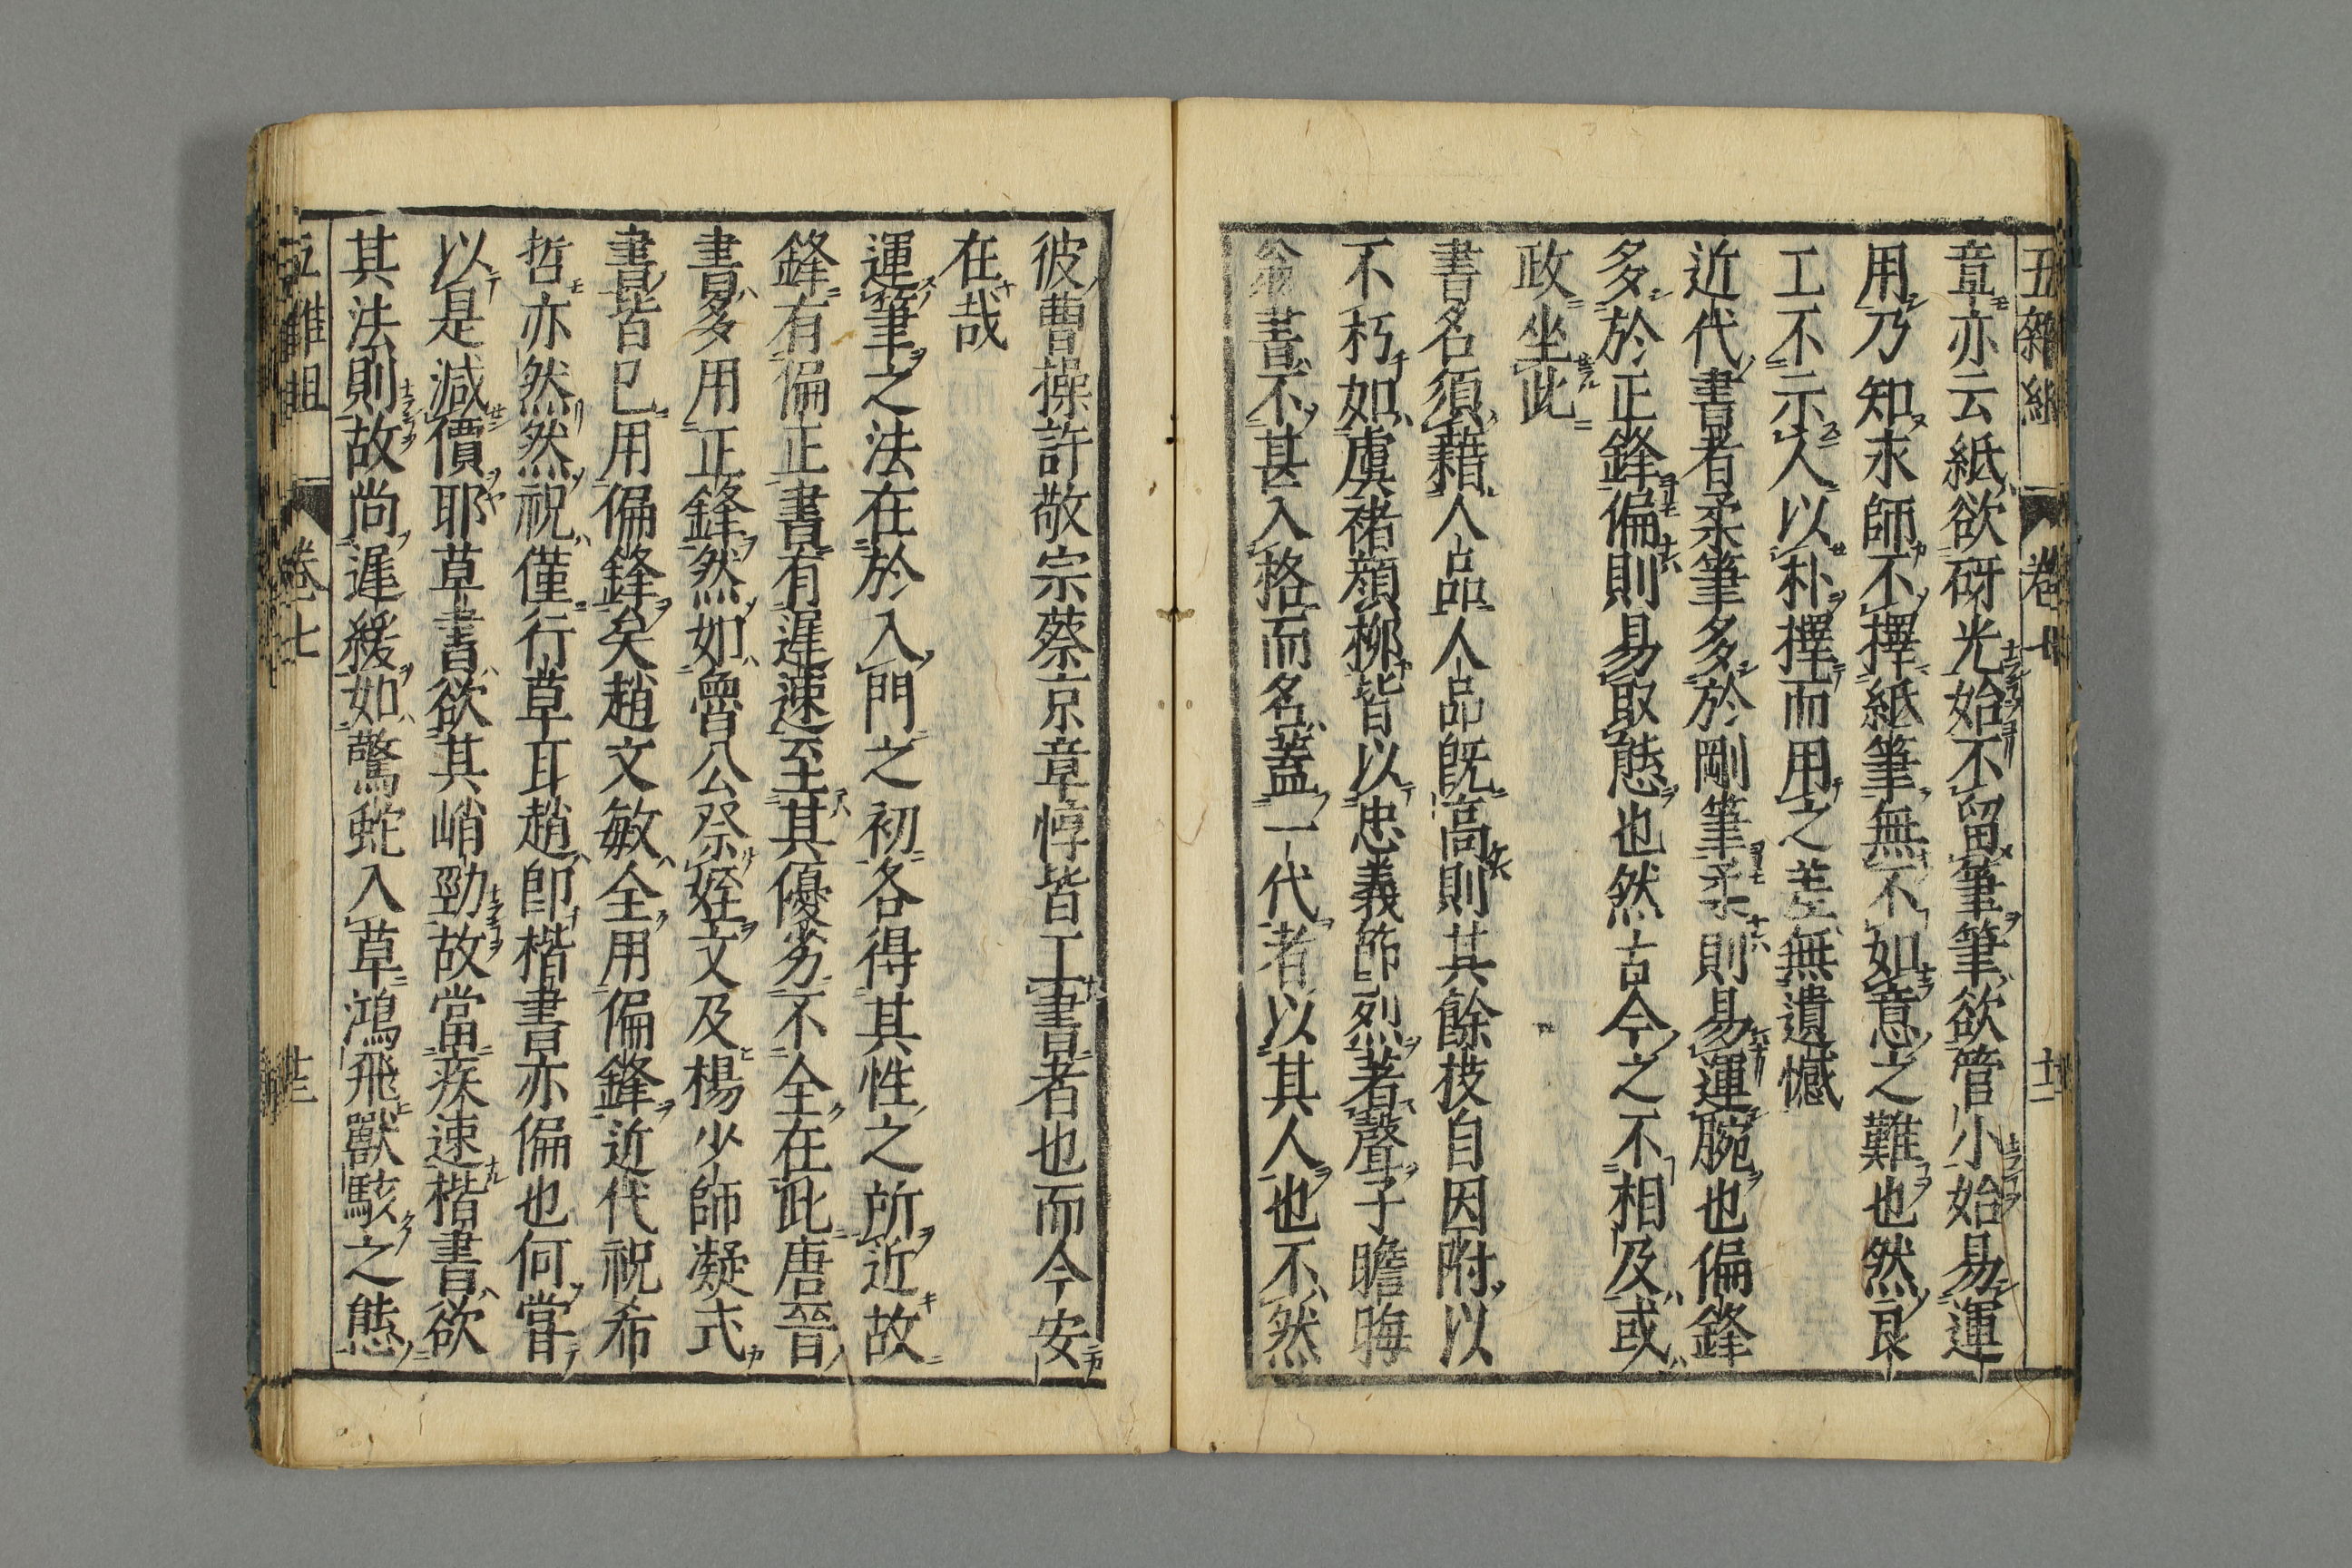 五雜組 卷七 十二
章亦云紙欲硏光始不留筆筆欲管小始易運
用乃知求師不擇紙筆無不如意之難也然良
工不示人以朴擇而用之差無遺憾
近代書者柔筆多於剛筆柔則易運腕也偏鋒
多於正鋒偏則易取態也然古今之不相及或
政坐此
書名須藉人品人品旣高則其餘技自因附以
不朽如虞褚顔柳皆以忠義節烈著聲子瞻晦
翁書不甚入格而名蓋一代者以其人也不然
彼曹操許敬宗蔡京章惇皆工書者也而今安
在哉
運筆之法在於入門之初各得其性之所近故
鋒有偏正書有遲速至其優劣不全在此唐晉
書多用正鋒然如魯公祭姪文及楊少師凝式
書皆已用偏鋒矣趙文敏全用偏鋒近代祝希
哲亦然然祝僅行草耳趙卽楷書亦偏也何嘗
以是減價耶草書欲其峭勁故當疾速楷書欲
其法則故尚遲緩如驚蛇入草鴻飛獸駭之態
五雜組 卷七 十三